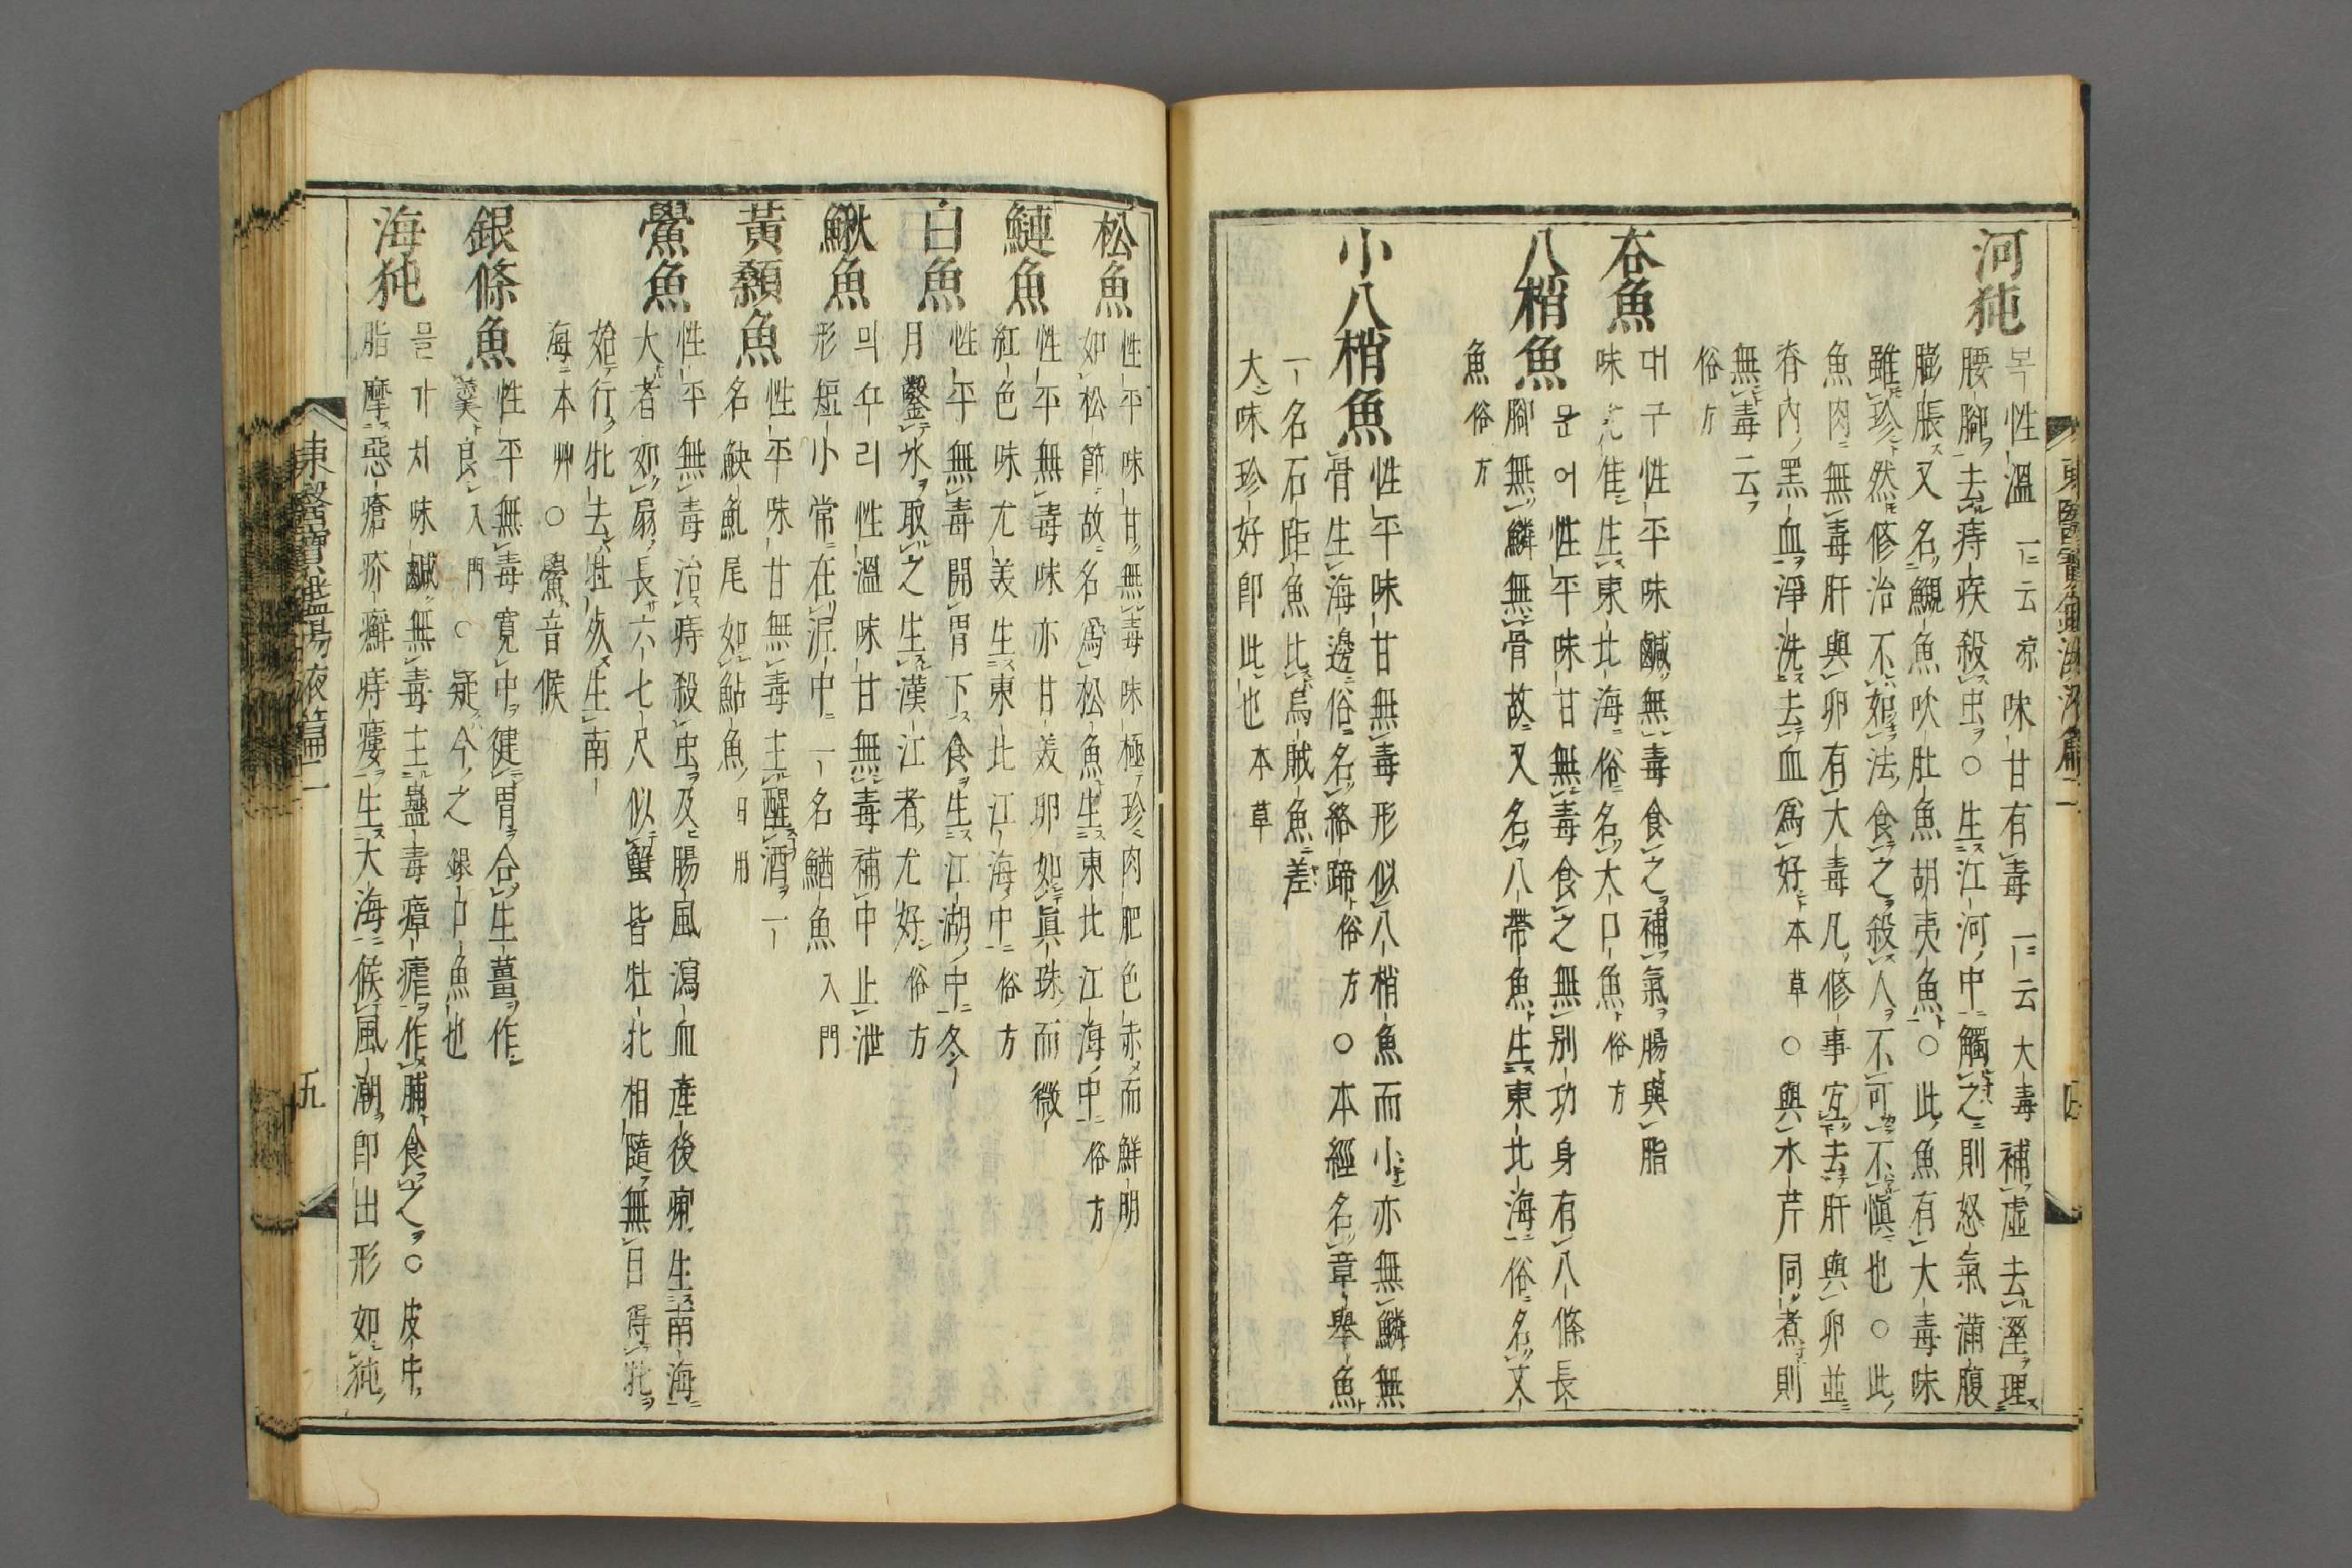 東醫寶鑑湯液篇二
河㹠
복性溫一云凉味甘有毒一云大毒補虛去溼理
腰脚去痔疾殺虫○生江河中觸之則怒氣滿腹
膨脹又名鯢魚吹肚魚胡夷魚○此魚有大毒味
雖珍然修治不如法食之殺人不可不愼也○此
魚肉無毒肝與卵有大毒凡修事宜去肝與卵並
脊內黑血淨洗去血爲好本草○與水芹同煮則
無毒云
俗方
夻魚
대구性平味鹹無毒食之補氣腸與脂
味尤佳生東北海俗名大口魚俗方
八梢魚
문어性平味甘無毒食之無別功身有八條長
脚無鱗無骨故又名八帶魚生東北海俗名文
魚俗方
小八梢魚
性平味甘無毒形似八梢魚而小亦無鱗無
骨生海邊俗名絡蹄俗方○本經名章擧魚
一名石距魚比烏賊魚差
大味珍好卽此也本草
松魚
性平味甘無毒味極珍肉肥色赤而鮮明
如松節故名爲松魚生東北江海中俗方
鰱魚
性平無毒味亦甘美卵如眞珠而微
紅色味尤美生東北江海中俗方
白魚
性平無毒開胃下食生江湖中冬
月鑿氷取之生漢江者尤好俗方
鰍魚
믜꾸리性溫味甘無毒補中止泄
形短小常在泥中一名鰌魚入門
黃顙魚
性平味甘無毒主醒酒一
名䱀魟尾如鮎魚日用
鱟魚
性平無毒治痔殺虫及腸風瀉血產後痢生南海
大者如扇長六七尺似蟹皆牡牝相隨無目得牝
始行牝去牡死生南
海本艸○鱟音候
銀條魚
性平無毒寬中健胃合生薑作
羹良入門○疑今之銀口魚也
海㹠
믈가치味鹹無毒主蠱毒瘴瘧作脯食之○皮中
脂摩惡瘡疥癬痔瘻生大海候風潮卽出形如㹠
東醫寶鑑湯液篇二
五